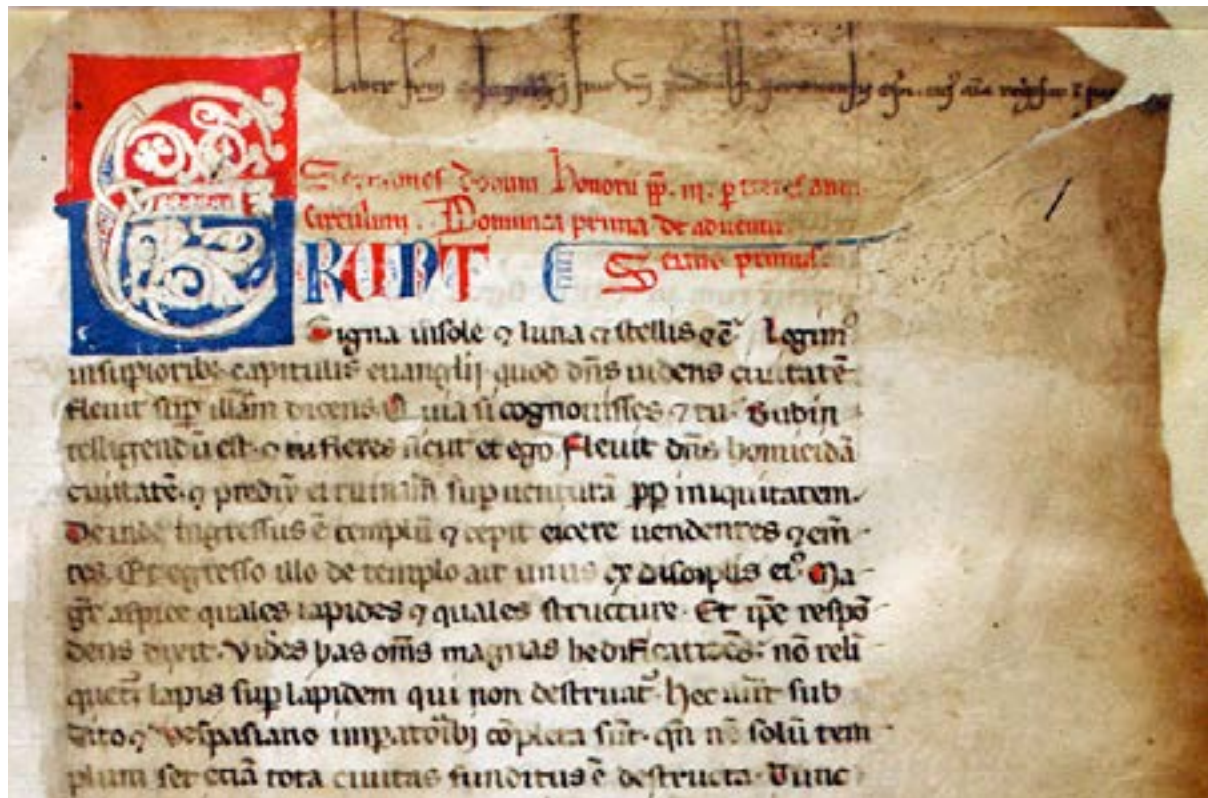 Sermones domni honorii pp. iii. p totius anni
circulum. Dominica prima de aduentu
ERUNT Sermo primus.
Signa in sole ⁊ luna et stellis ⁊ cẽ. Legim⁹
in supiorib; capitulis euanglij quod dñs uidens ciuitatẽ
fleuit sup illam dicens. Quia si cognouisses ⁊ tu. Subin
telligendũ est. ⁊ tu fleres sicut et ego. Fleuit dñs homicidã
ciuitatẽ. ⁊ predix̃ ei ruinam supuenturã pp iniquitatem.
Deinde ingressus ẽ templũ ⁊ cepit eicere uendentes ⁊ em̃
tes. Et egresso illo de templo ait unus ex discipulis ei⁹. Ma
gr̃ aspice quales lapides ⁊ quales structure. Et ip̃e respõ
dens dixit. Vides has om̃s magnas hedificatiões: nõ reli
quet² lapis sup lapidem qui non destruat². hec sub
tito ⁊ vespasiano impatoribȝ cõpleta sũt. qñ nõ solũ tem
plum set etiã tota ciuitas funditus ẽ destructa. Tunc